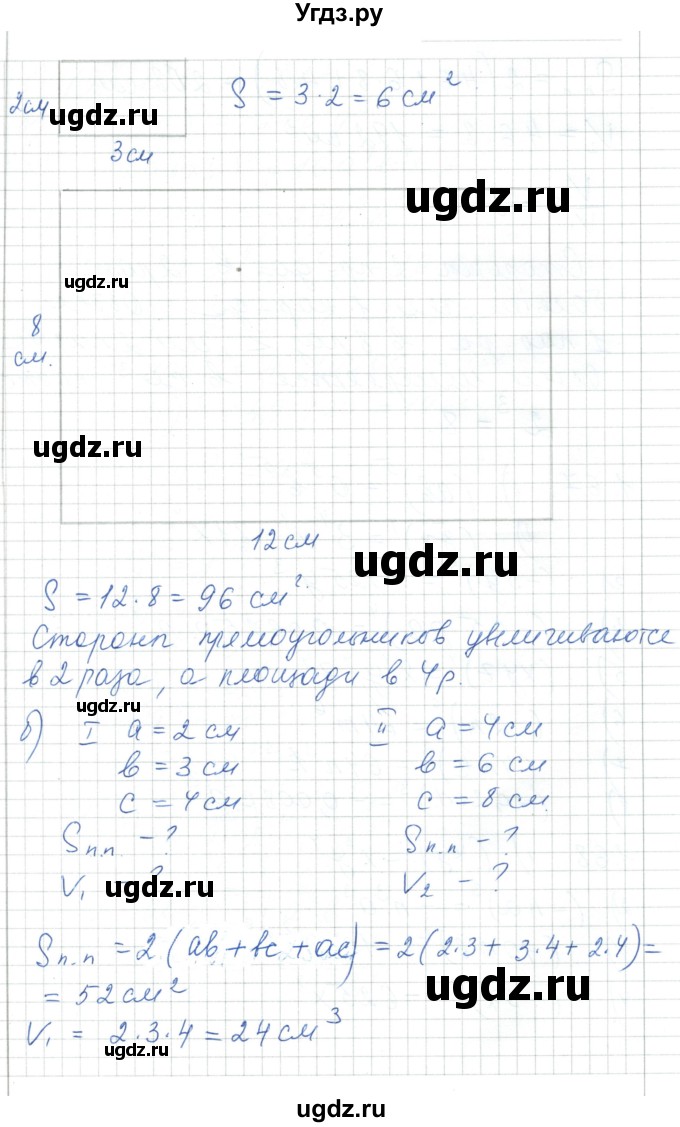 Угдз.ру
2см
ugdz.ru
S = 3·2 = 6 см²
3см
ugdz.ru
ugdz.ru
8
см.
ugdz.ru
12 см
ugdz.ru
S = 12·8 = 96 см².
Стороны прямоугольников увеличиваются
в 2 раза, а площади в 4р.
ugdz.ru
б) I a = 2 см II a = 4см
в = 3 см в = 6 см
c = 4см c = 8 см.
Sп.п. – ? Sп.п – ?
V₁ ? V₂ – ?
ugdz.ru
Sп.п = 2 (aв + вc + ac) = 2 (2·3 + 3·4 + 2·4) =
= 52 см²
ugdz.ru
V₁ = 2·3·4 = 24 см³
ugdz.ru
ugdz.ru